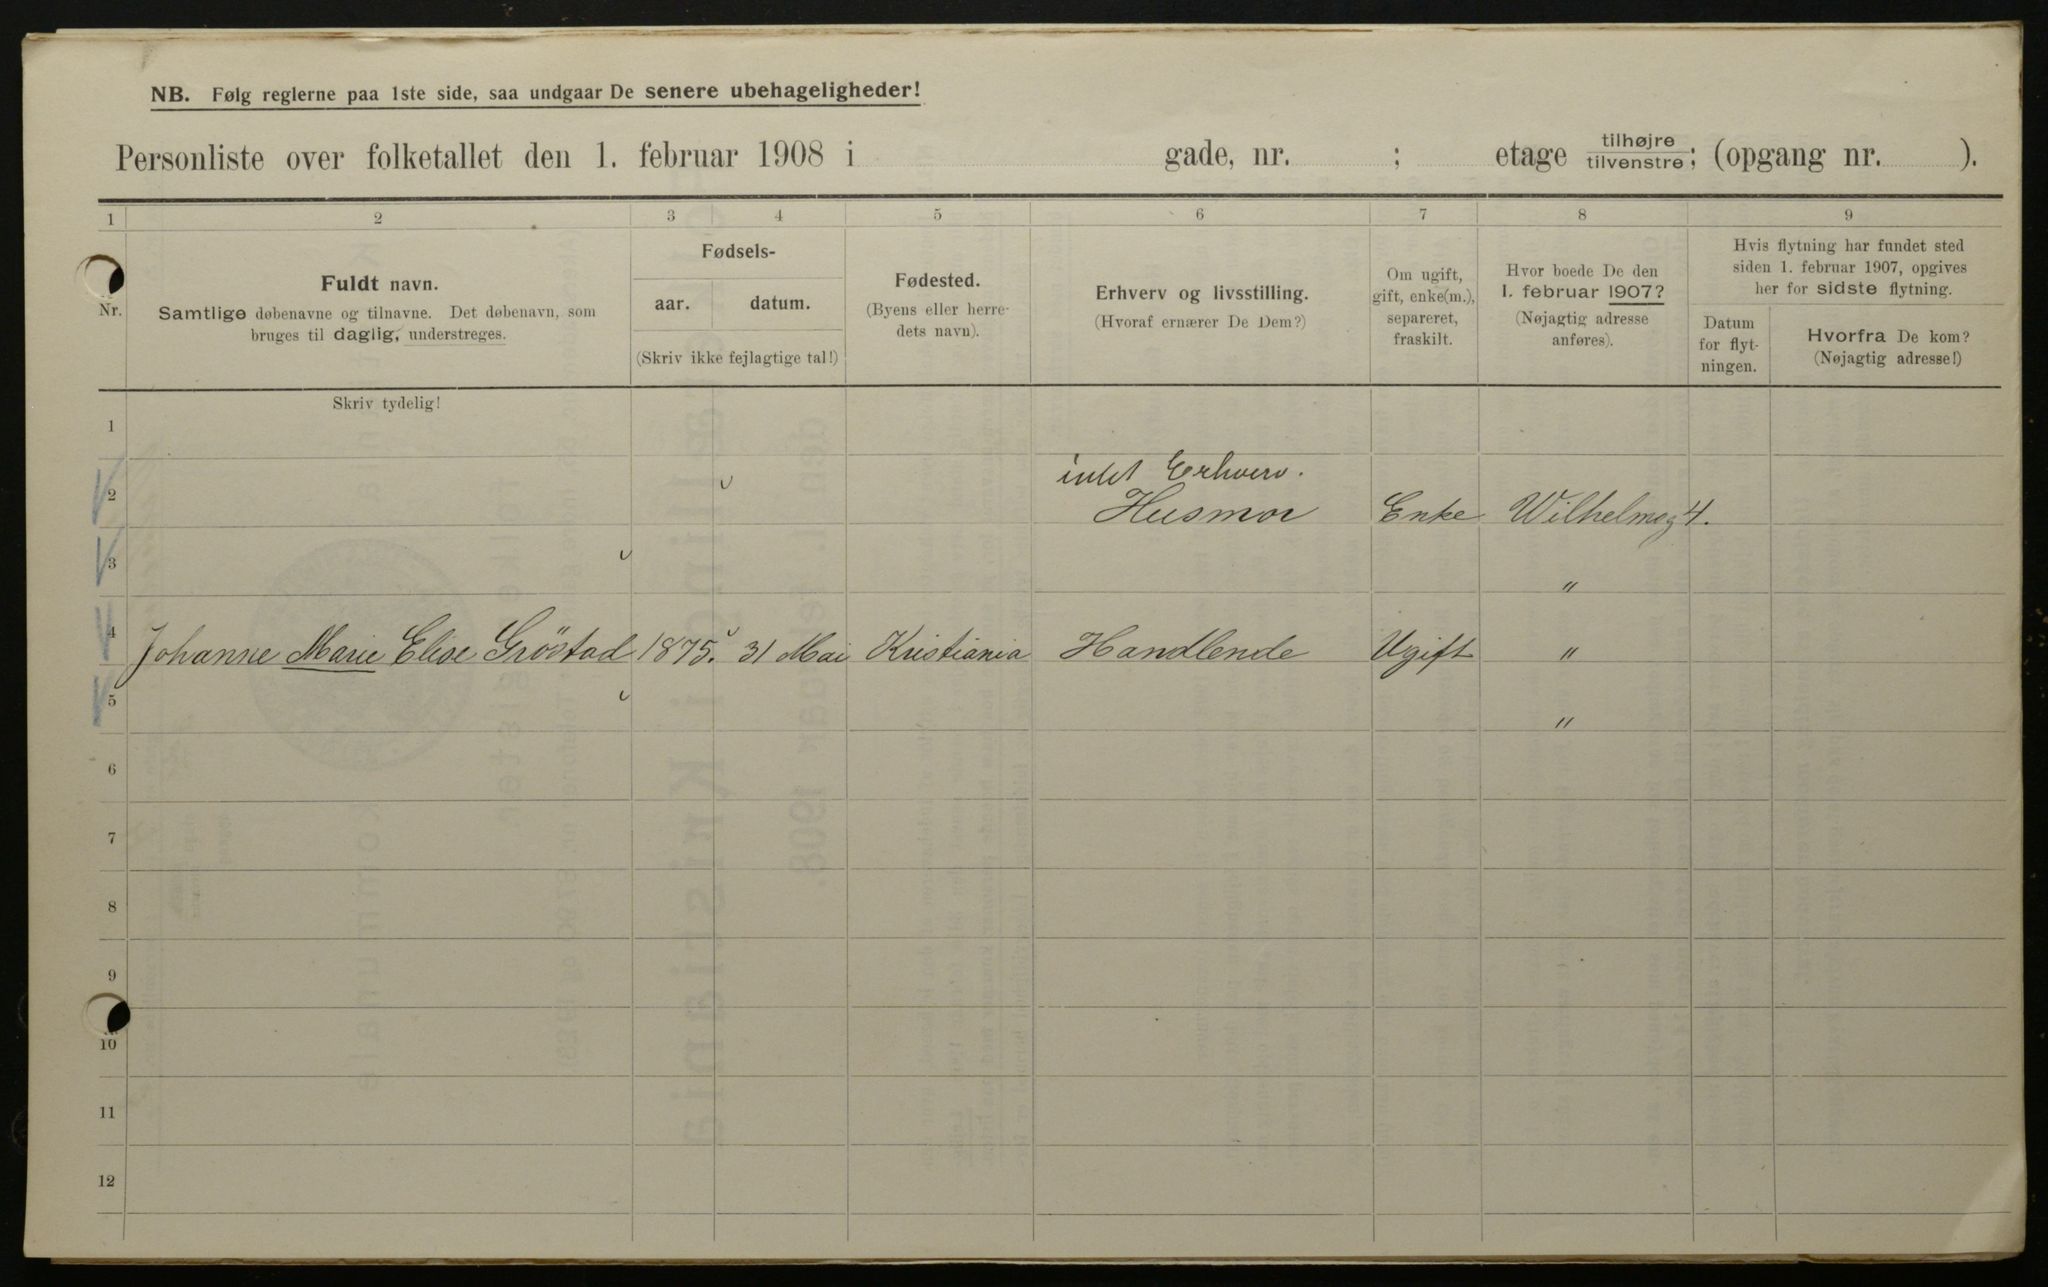 NB. Følg reglerne paa 1ste side, saa undgaar De senere ubehageligheder!
Personliste over folketallet den 1. februar 1908 i gade, nr. ; etage tilhøjre tilvenstre; (opgang nr. ).
1 2 3 4 5 6 7 8 9
Nr.
Fuldt navn.
Samtlige døbenavne og tilnavne. Det døbenavn, som
bruges til daglig, understreges.
Fødsels-
aar. datum.
(Skriv ikke fejlagtige tal!)
Fødested.
(Byens eller herre-
dets navn).
Erhverv og livsstilling.
(Hvoraf ernærer De Dem?)
Om ugift,
gift, enke(m.),
separeret,
fraskilt.
Hvor boede De den
1. februar 1907?
(Nøjagtig adresse
anføres).
Hvis flytning har fundet sted
siden 1. februar 1907, opgives
her for sidste flytning.
Datum
for flyt-
ningen.
Hvorfra De kom?
(Nøjagtig adresse!)
Skriv tydelig!
1
intet Erhverv.
2 Husmor Enke Wilhelmsg 4.
3 "
4 Johanne Marie Elise Gröstad 1875. 31 Mai Kristiania Handlende Ugift "
5 "
6
7
8
9
10
11
12